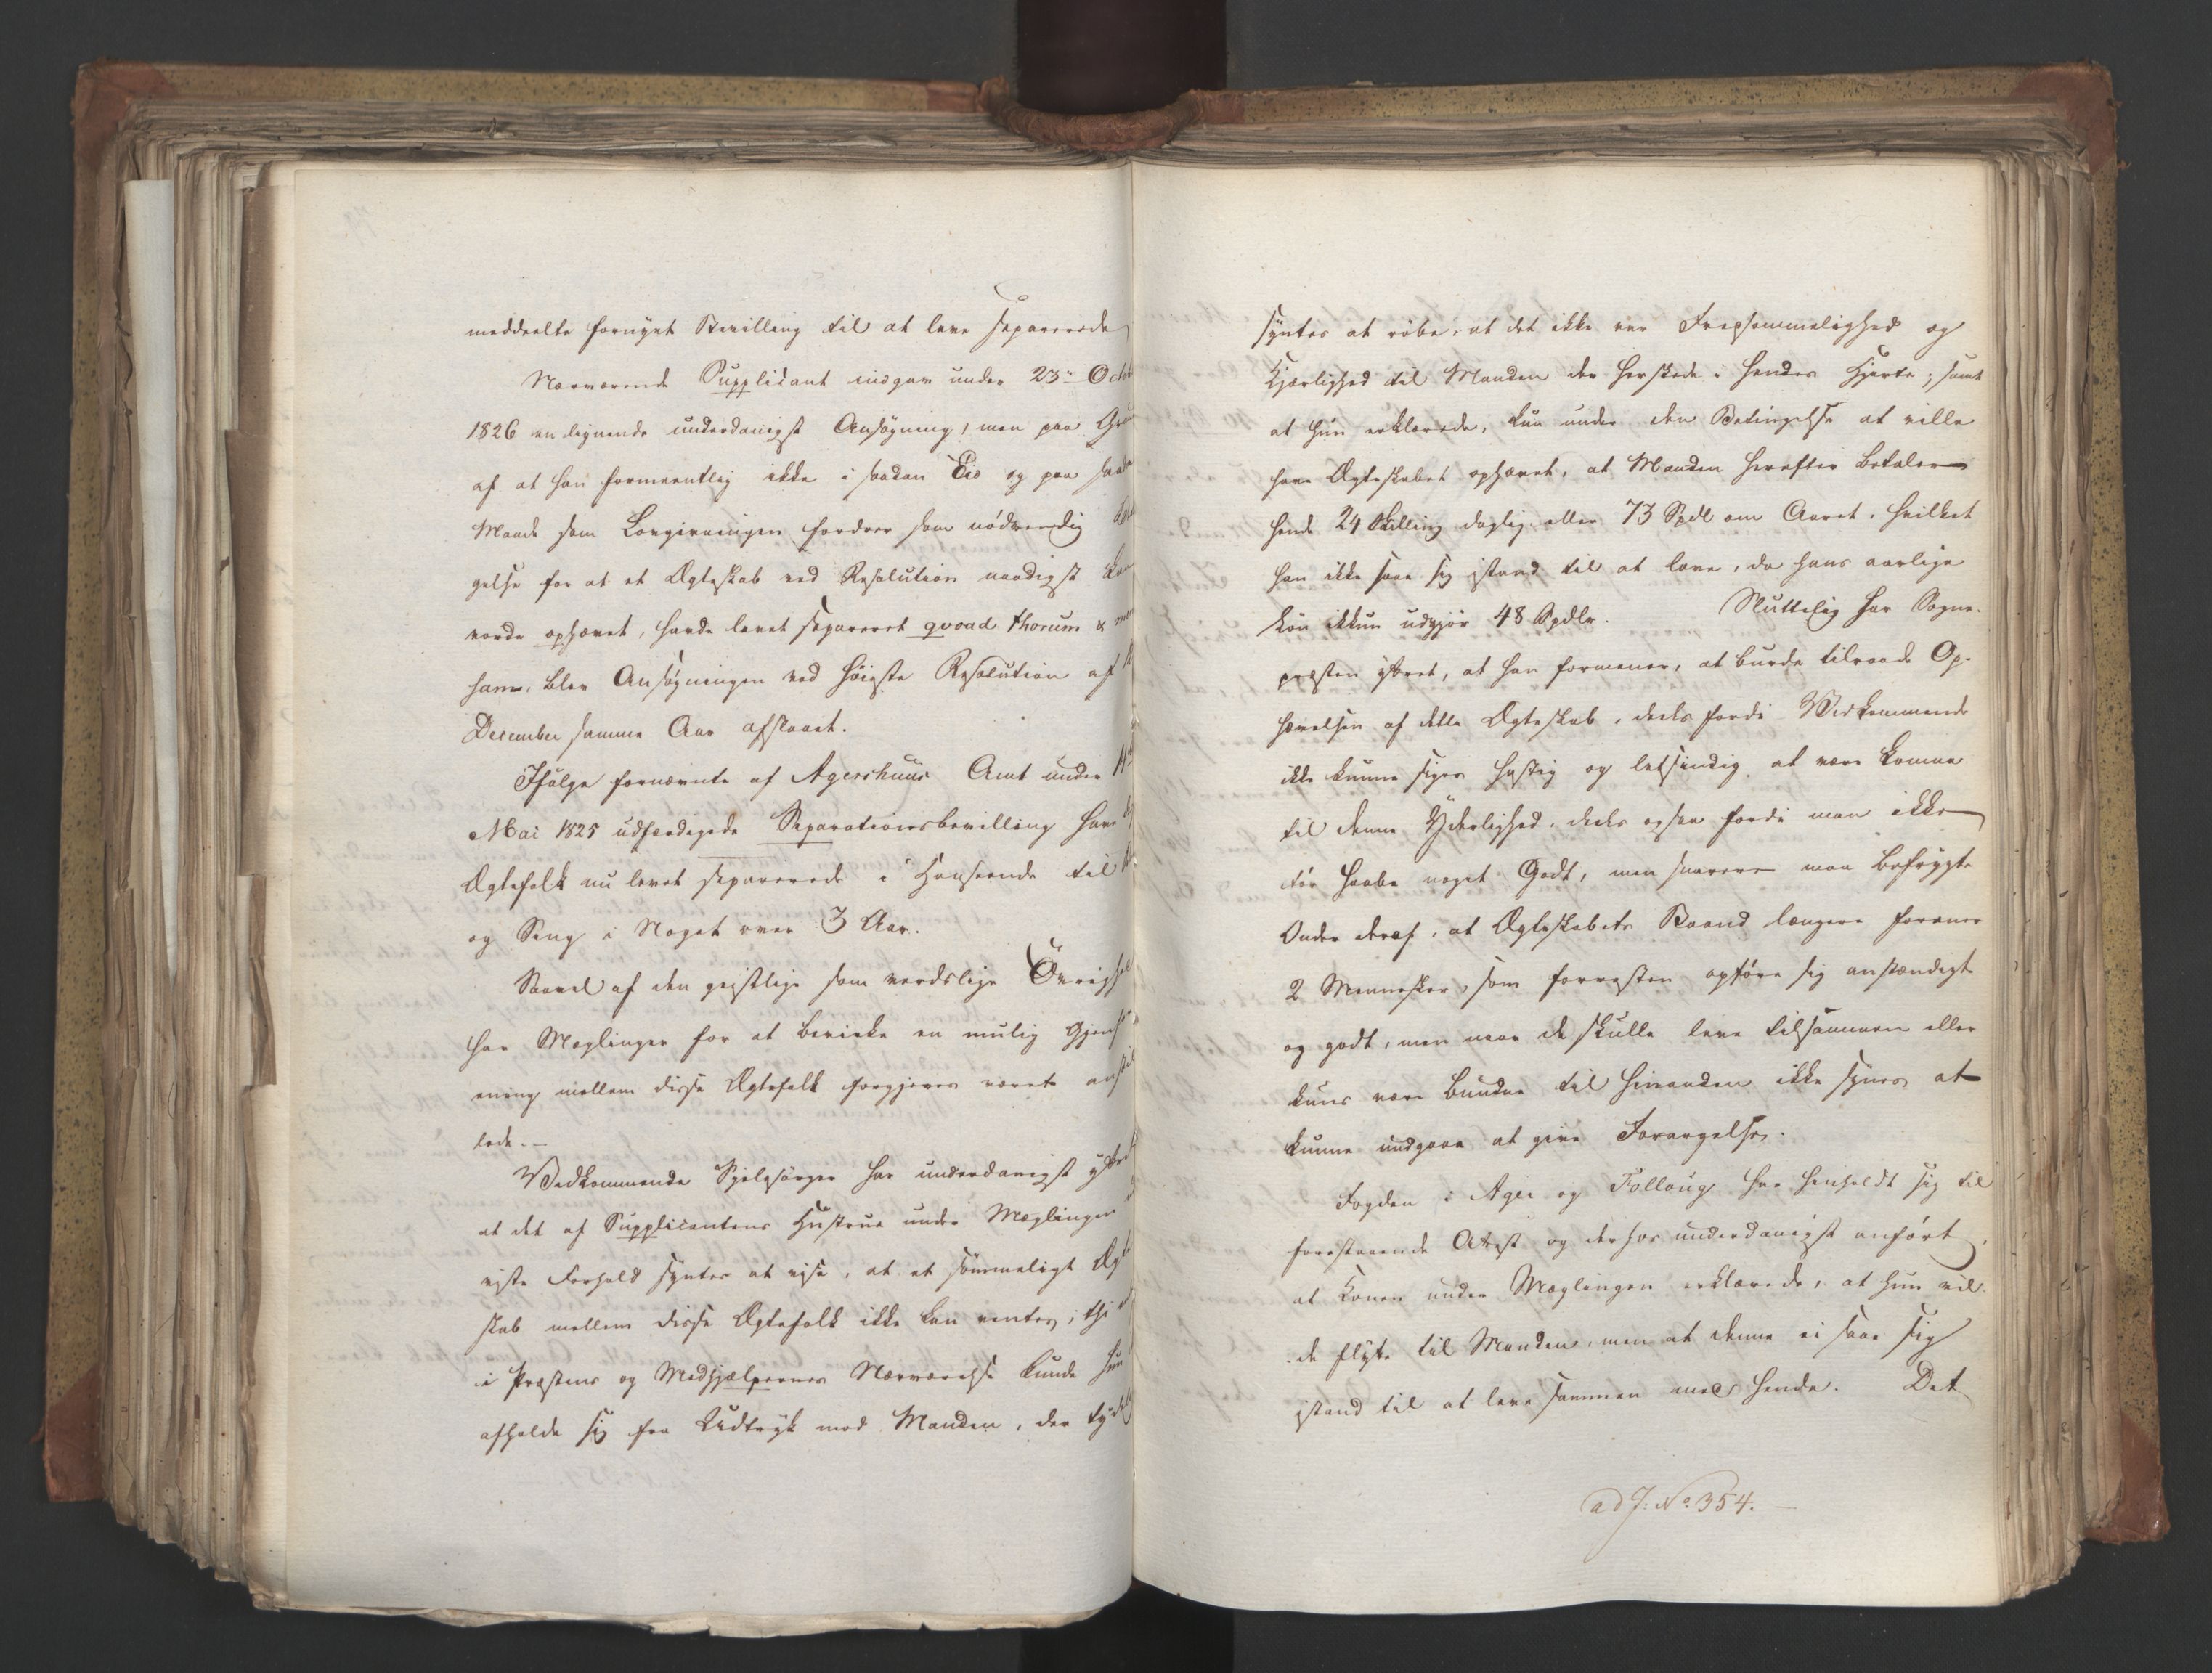 meddeelte fornyet Bevilling til at leve separerede
Nærværende Supplicant indgav under 23de Octob
1826 en lignende underdanigst Ansøgning, men paa Gru
af at han formeentlig ikke i saadan Tid og paa saad
Maade som Lovgivningen fordrer som nødvendig
gelse for at et Ægteskab ved Resolution naadigst
vorde ophævet, havde levet separeret qvoad thorum & men
sam, blev Ansøgningen ved høieste Resolution af
December samme Aar afslaaet.
Ifølge fornævnte af Agershuus Amt under
Mai 1825 udfærdigede Separationsbevilling have
Ægtefolk nu levet separerede i Henseende til
og Seng i Noget over 3 Aar.
Saavel af den geistlige som verdslige Øvrighed
har Mæglinger for at bevirke en mulig Gjenfor
ening mellem disse Ægtefolk forgjeves været anstil
lede.-
Vedkommende Sjelesørger har underdanigst yttret
at det af Supplicantens Hustrue under Mæglingen
viste Forhold syntes at vise, at et sømmeligt Ægte
skab mellem disse Ægtefolk ikke kan ventes; thi
i Præstens og Medhjælpernes Nærværelse kunde hun
afholde sig fra Udtryk mod Manden, der tydel
syntes at røbe, at det ikke var Fredsommelighed og
Kjærlighed til Manden der herskede i hendes Hjerte; samt
at hun erklærede, kun under den Betingelse at ville
have Ægteskabet ophævet, at Manden herefter betaler
hende 24 Skilling daglig eller 73 Spdl om Aaret, hvilket
han ikke saae sig istand til at love, da hans aarlige
Løn ikkun udgjør 48 Spdlr. Sluttelig har Sogne-
præsten yttret, at han formener, at burde tilraade Op-
hævelsen af dette Ægteskab, deels fordi Vedkommende
ikke kunne siges hastig og letsindig at være komne
til denne Yderlighed, deels ogsaa fordi man ikke
tør haabe noget Godt, men snarere maa befrygte
Ondt deraf, at Ægteskabets Baand længere forener
2 Mennesker, som forresten opføre sig anstændigt
og godt, men naar de skulle leve tilsammen eller
kuns være bundne til hinanden ikke synes at
kunne undgaae at give Forargelse.
Fogden i Ager og Follaug har henholdt sig til
forestaaende Attest og derhos underdanigst anført,
at Konen under Mæglingen erklærede, at hun vil-
de flytte til Manden, men at denne ei saae sig
istand til at leve sammen med hende. Det
ad J: No. 354. -